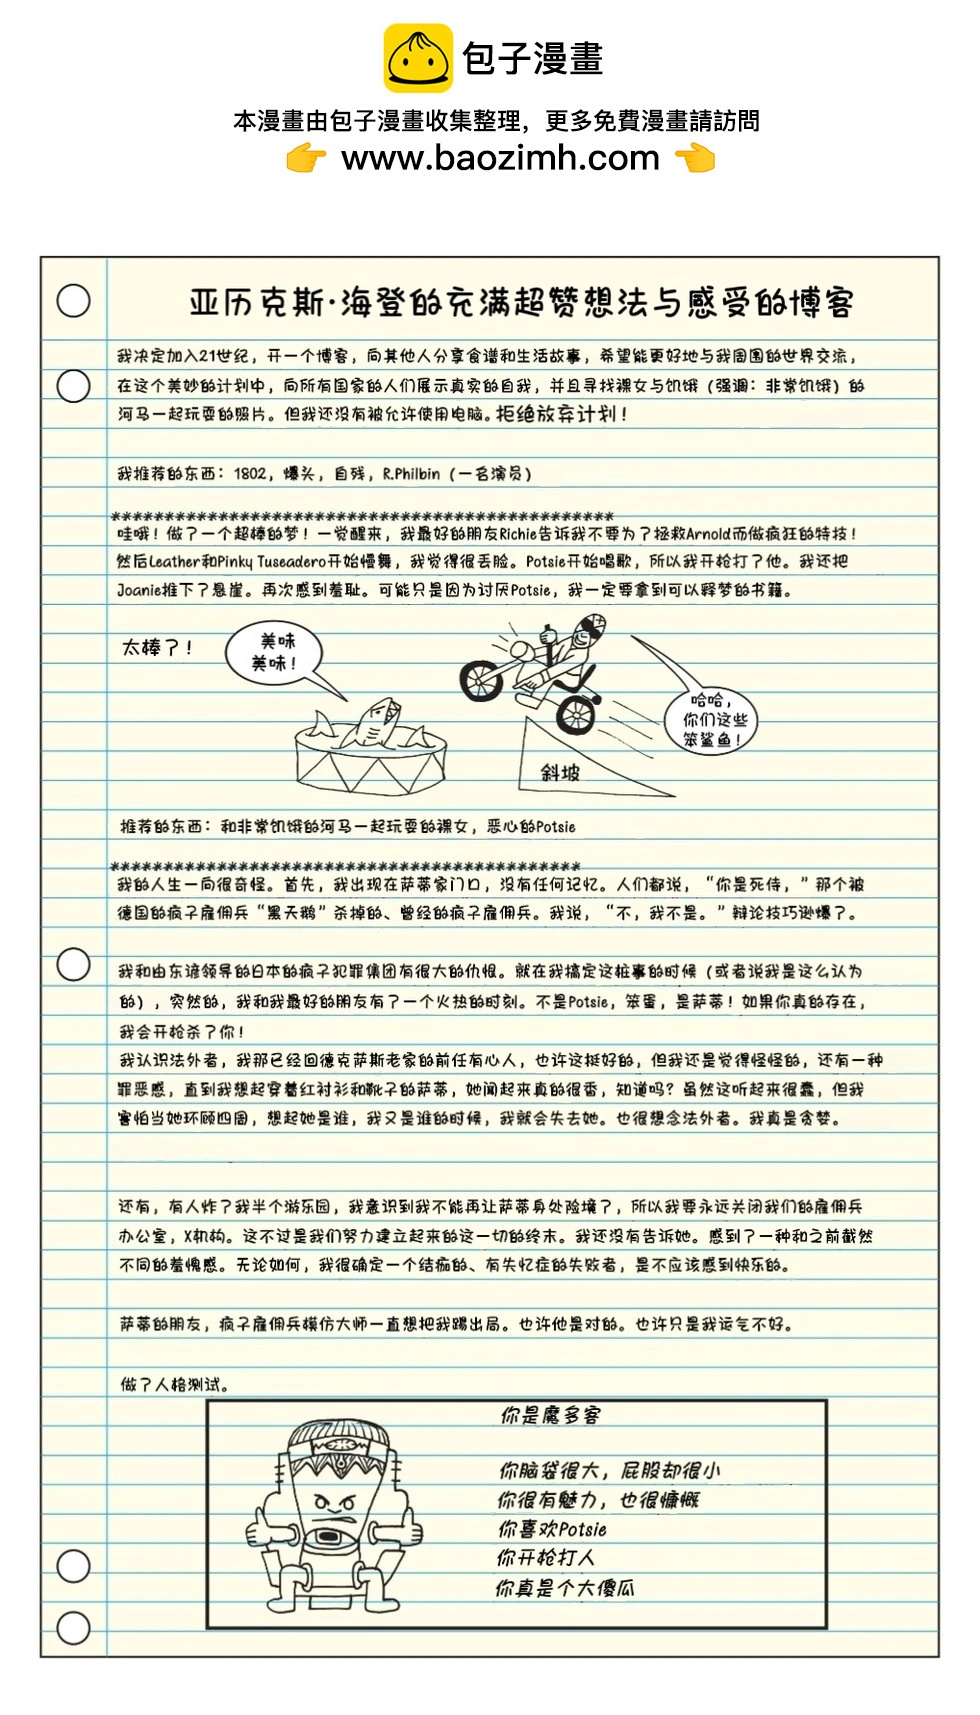 包子漫畫
本漫畫由包子漫畫收集整理，更多免費漫畫請訪問
👉 www.baozimh.com 👈
亚历克斯·海登的充满超赞想法与感受的博客
我决定加入21世纪，开一个博客，向其他人分享食谱和生活故事，希望能更好地与我周围的世界交流，
在这个美妙的计划中，向所有国家的人们展示真实的自我，并且寻找裸女与饥饿（强调：非常饥饿）的
河马一起玩耍的照片。但我还没有被允许使用电脑。拒绝放弃计划！
我推荐的东西：1802，爆头，自残，R.Philbin（一名演员）
*******************************************
哇哦！做了一个超棒的梦！一觉醒来，我最好的朋友Richie告诉我不要为了拯救Arnold而做疯狂的特技！
然后Leather和Pinky Tuseadero开始慢舞，我觉得很丢脸。Potsie开始唱歌，所以我开枪打了他。我还把
Joanie推下了悬崖。再次感到羞耻。可能只是因为讨厌Potsie，我一定要拿到可以释梦的书籍。
太棒了！
美味
美味！
哈哈，
你们这些
笨鲨鱼！
斜坡
推荐的东西：和非常饥饿的河马一起玩耍的裸女，恶心的Potsie
****************************************
我的人生一向很奇怪。首先，我出现在萨蒂家门口，没有任何记忆。人们都说，“你是死侍，”那个被
德国的疯子雇佣兵“黑天鹅”杀掉的、曾经的疯子雇佣兵。我说，“不，我不是。”辩论技巧逊爆了。
我和由东谚领导的日本的疯子犯罪集团有很大的仇恨。就在我搞定这桩事的时候（或者说我是这么认为
的），突然的，我和我最好的朋友有了一个火热的时刻。不是Potsie，笨蛋，是萨蒂！如果你真的存在，
我会开枪杀了你！
我认识法外者，我那已经回德克萨斯老家的前任有心人，也许这挺好的，但我还是觉得怪怪的，还有一种
罪恶感，直到我想起穿着红衬衫和靴子的萨蒂，她闻起来真的很香，知道吗？虽然这听起来很蠢，但我
害怕当她环顾四周，想起她是谁，我又是谁的时候，我就会失去她。也很想念法外者。我真是贪婪。
还有，有人炸了我半个游乐园，我意识到我不能再让萨蒂身处险境了，所以我要永远关闭我们的雇佣兵
办公室，X机构。这不过是我们努力建立起来的这一切的终末。我还没有告诉她。感到了一种和之前截然
不同的羞愧感。无论如何，我很确定一个结痂的、有失忆症的失败者，是不应该感到快乐的。
萨蒂的朋友，疯子雇佣兵模仿大师一直想把我踢出局。也许他是对的。也许只是我运气不好。
做了人格测试。
你是魔多客
你脑袋很大，屁股却很小
你很有魅力，也很慷慨
你喜欢Potsie
你开枪打人
你真是个大傻瓜